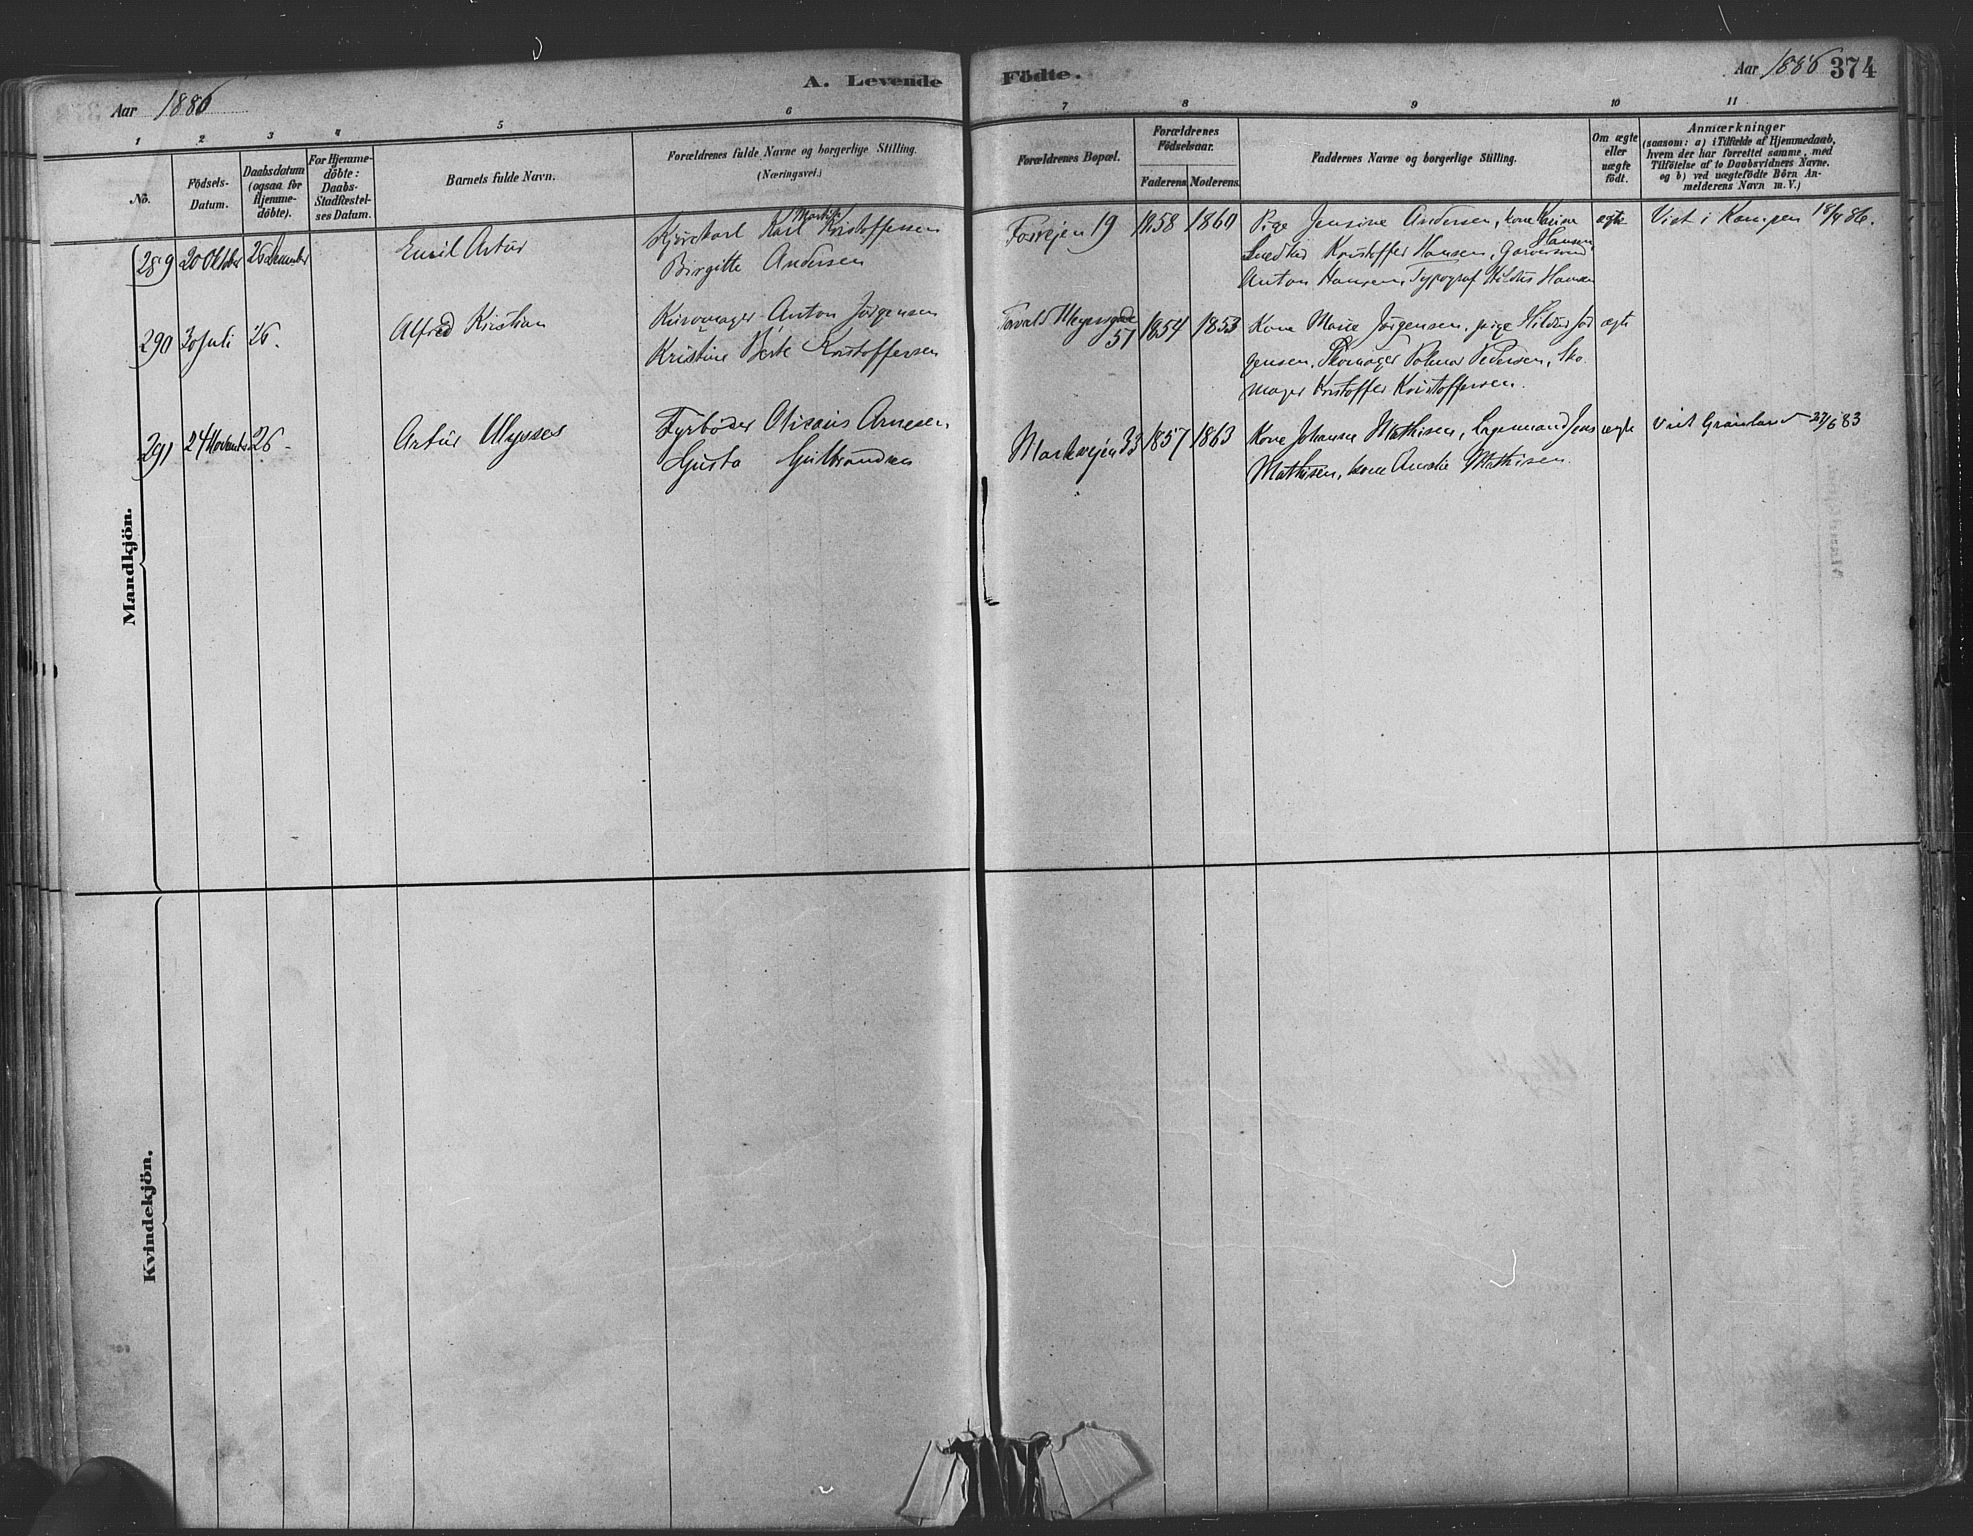 A. Levende Födte.
Aar 1886
Aar 1886 374
1 2 3 4 5 6 7 8 9 10 11
No.
Födsels-Datum.
Daabsdatum (ogsaa for Hjemme-döbte).
For Hjemme-döbte: Daabs-Stadfæstel-ses Datum.
Barnets fulde Navn.
Forældrenes fulde Navne og borgerlige Stilling.
(Næringsvei.)
Forældrenes Bopæl.
Forældrenes Födselsaar.
Faderens Moderens
Faddernes Navne og borgerlige Stilling.
Om ægte eller uægte født.
Anmærkninger
(saasom: a) i Tilfælde af Hjemmedaab,
hvem der har forrettet samme, med
Tilföielse af to Daabsvidners Navne.
og b) ved uægtefödte Börn An-
melderens Navn m. V.)
Mandkjön.
289 20 Oktober 26 December Emil Artur
Kjørekarl Karl Martin Kristoffersen
Birgitte Andersen
19 1858 1860
Pige Jensine Andersen, kone Karine Hansen
Kristoffer Hansen,
Anton Hansen, Typograf Hansen
ægte
Viet i Kampen 18/4 86.
290 30 Juli 26. Alfred Kristian
Anton Jörgensen
Kristine Berte Kristoffersen
Torvald Meyersgade 51 1854 1853
Kone Marie Jörgensen, pige Hilda Jör
gensen, Skomager Pedersen, Sko
mager Kristoffer Kristoffersen.
ægte
291 24 November 26 - Artur Ulysses
Fyrböder Arnesen
Gusta Gulbrandsen
Markveien 33 1857 1863
Kone Johanne Mathisen, Lagermand Jens
Mathisen, kone Amalie Mathisen.
ægte
Viet Grönland 27/6 83
Kvindekjön.